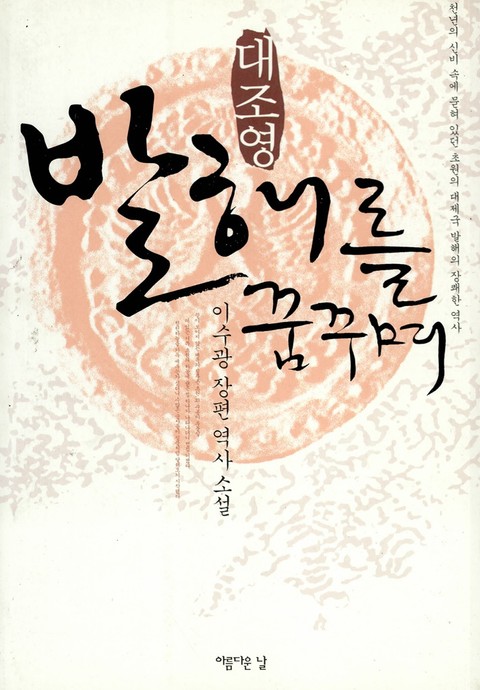 천년의 신비 속에 묻혀 있던 초원의 대제국 발해의 장쾌한 역사
대조영
발해를
꿈꾸며
이수광 장편 역사 소설
아름다운 날